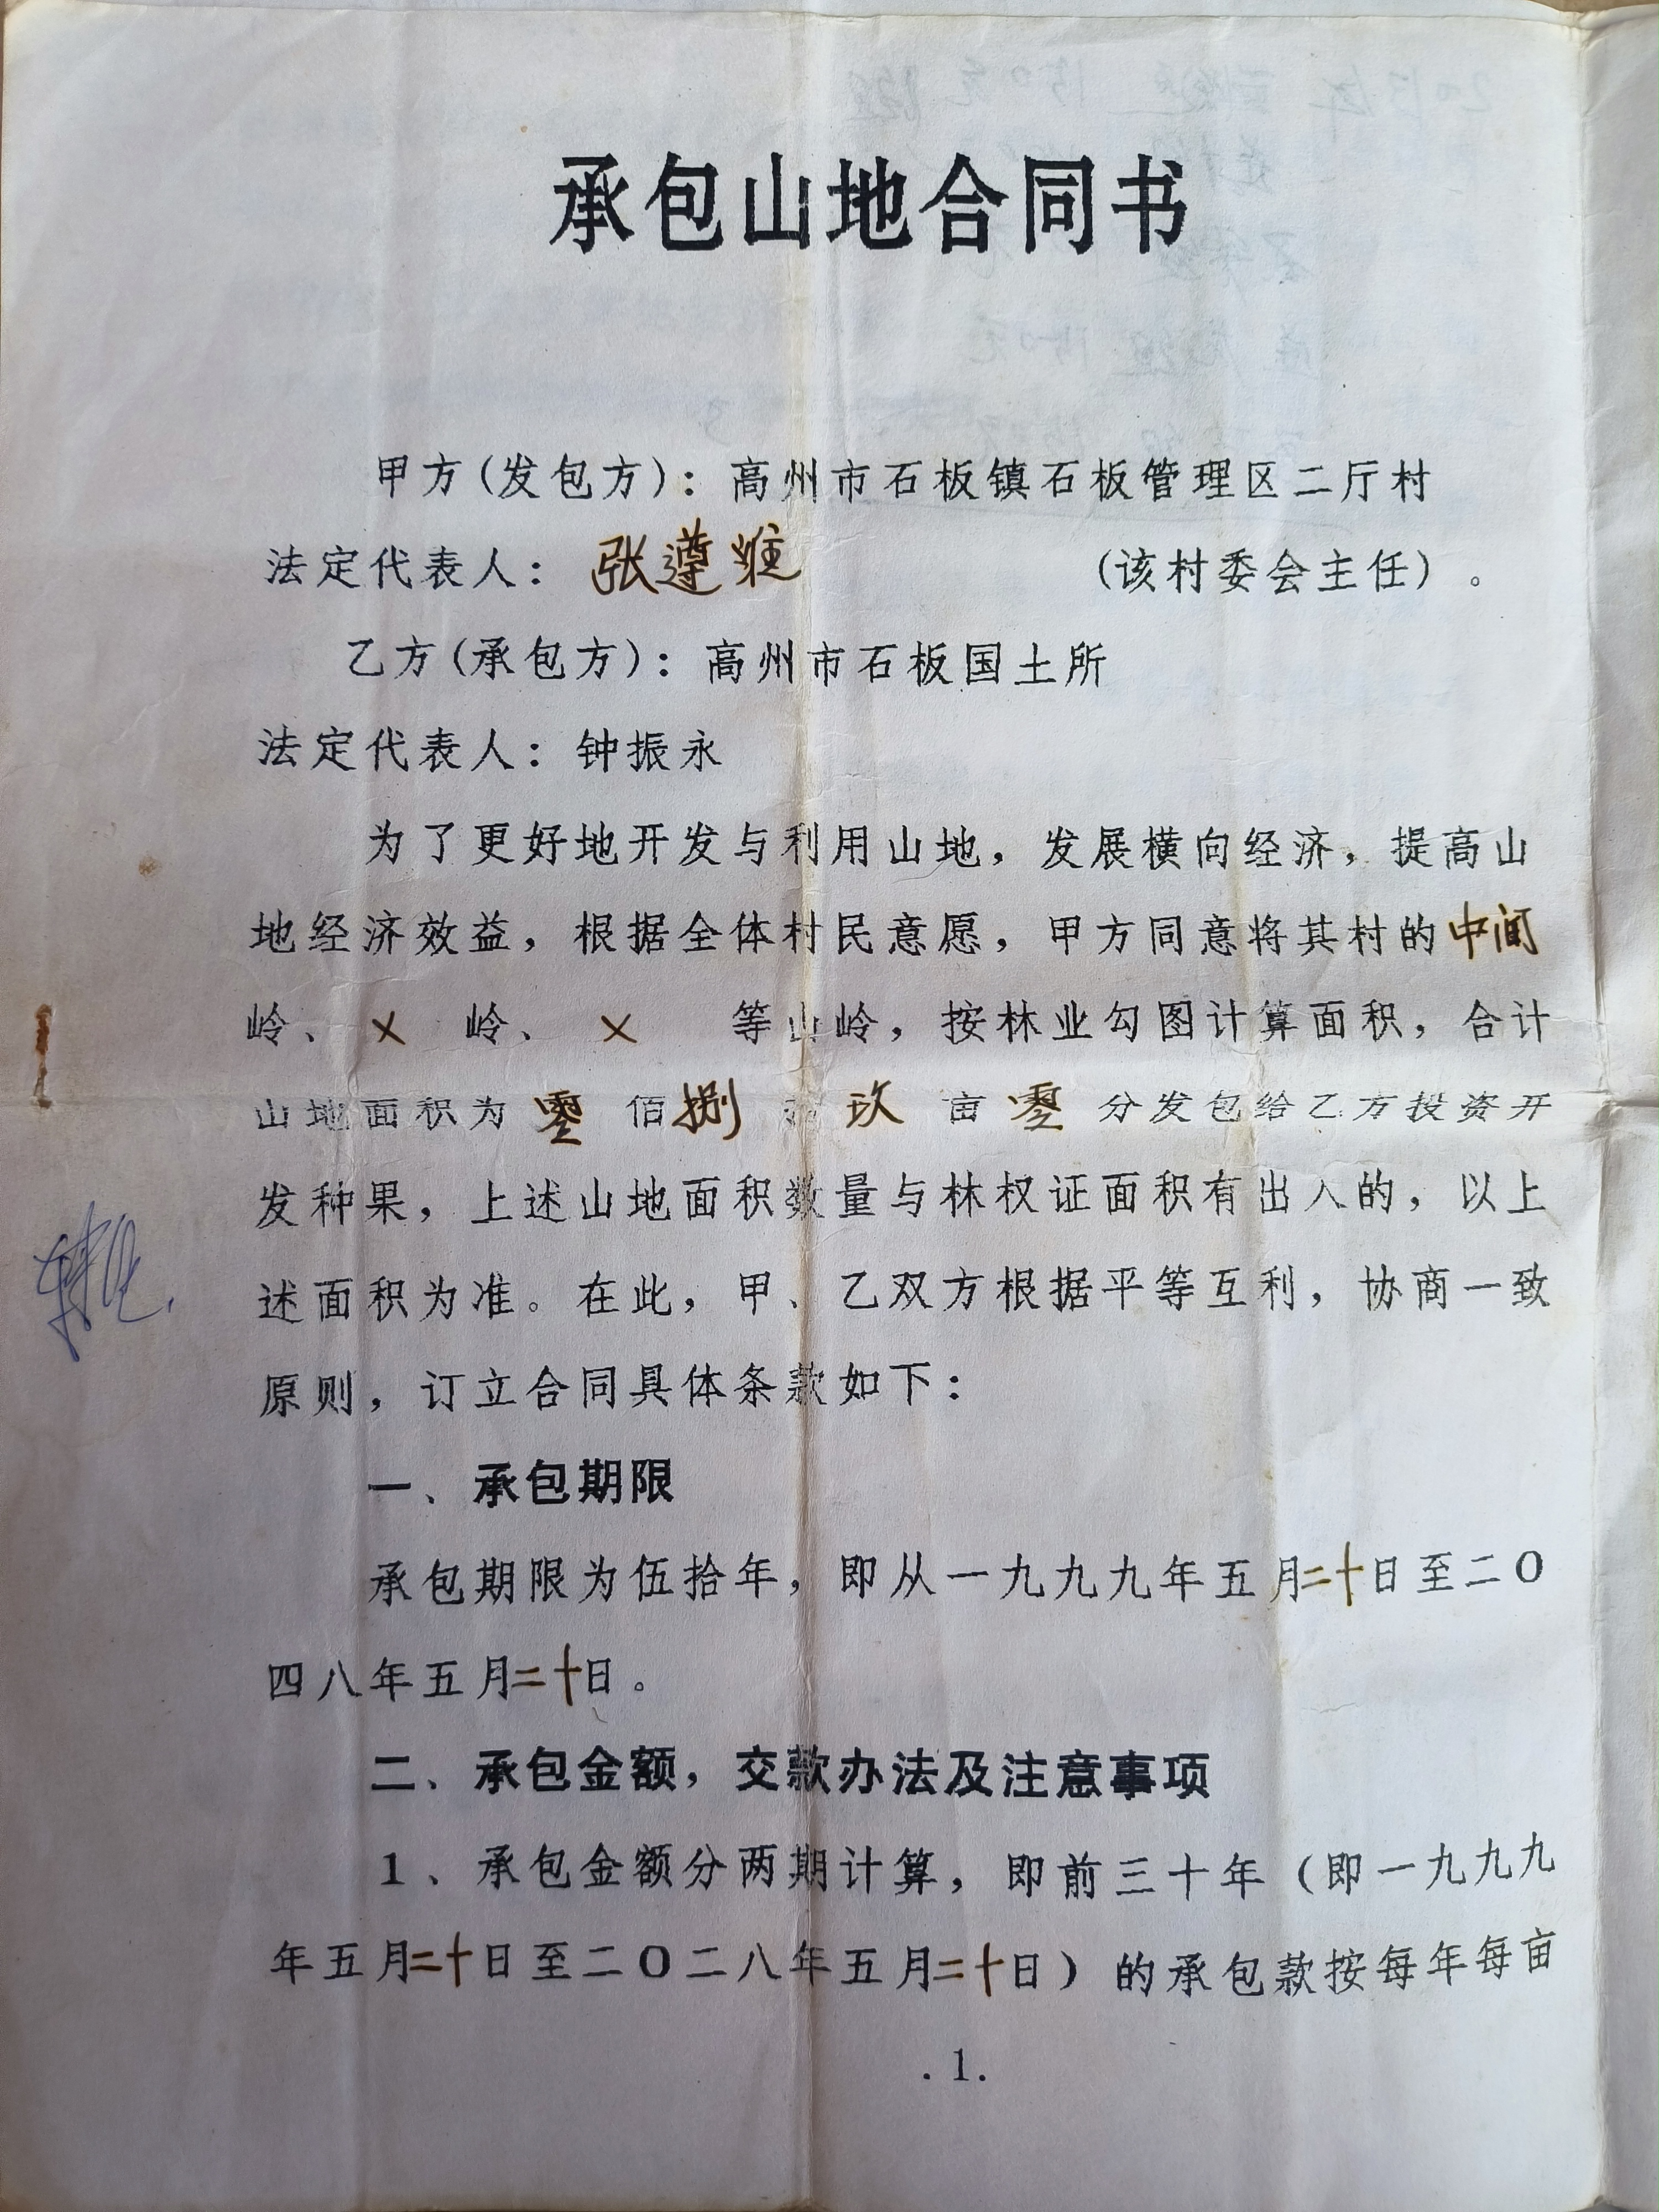 承包山地合同书
甲方(发包方)：高州市石板镇石板管理区二厅村
法定代表人：张遵淮 (该村委会主任)。
乙方(承包方)：高州市石板国土所
法定代表人：钟振永
为了更好地开发与利用山地，发展横向经济，提高山
地经济效益，根据全体村民意愿，甲方同意将其村的中间
岭、 × 岭、 × 等山岭，按林业勾图计算面积，合计
山地面积为 零 佰 捌 玖 亩 零 分发包给乙方投资开
发种果，上述山地面积数量与林权证面积有出入的，以上
述面积为准。在此，甲、乙双方根据平等互利，协商一致
原则，订立合同具体条款如下：
一、承包期限
承包期限为伍拾年，即从一九九九年五月二十日至二O
四八年五月二十日。
二、承包金额，交款办法及注意事项
1、承包金额分两期计算，即前三十年（即一九九九
年五月二十日至二O二八年五月二十日）的承包款按每年每亩
.1.